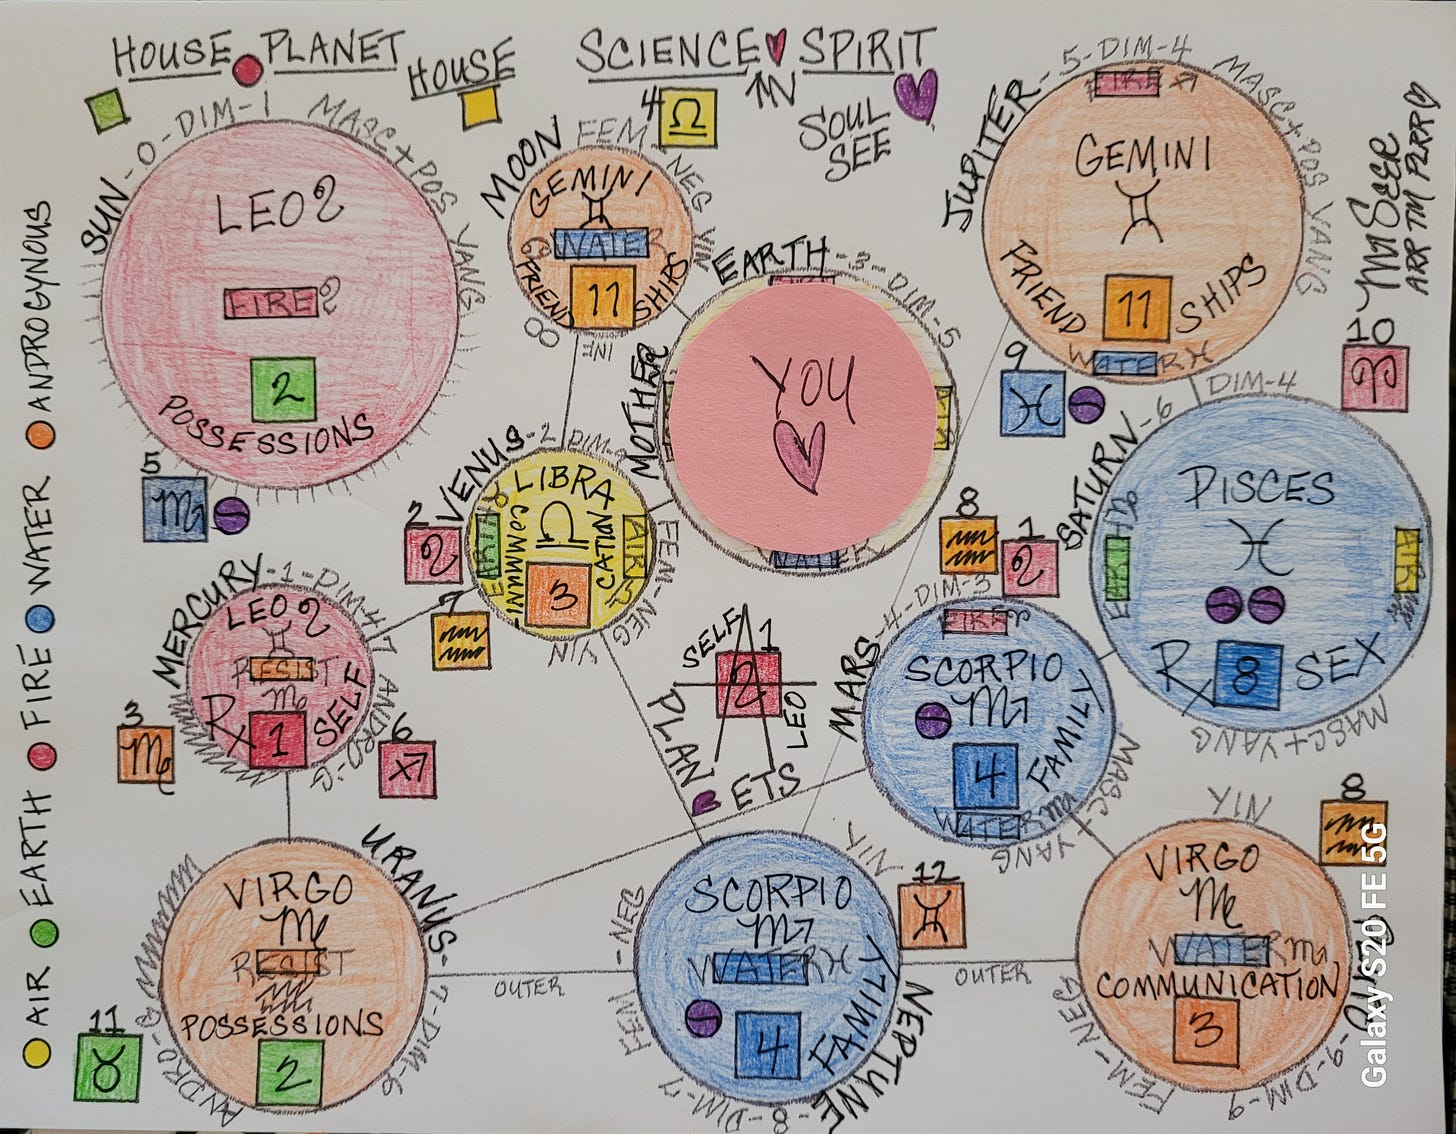 HOUSE PLANET
HOUSE
SCIENCE SPIRIT
IN
SOUL
SEE
SUN-0-DIM-1 MASC+POS YANG
LEO
FIRE
2
POSSESSIONS
5
MOON
FEM
NEG
YIN
4
♎
GEMINI
♊
WATER
11
FRIEND SHIPS
MOTHER EARTH-3-DIM-5
YOU
AIR
WATER
JUPITER-5-DIM-4
MASC+POS YANG
FIRE
GEMINI
♊
11
FRIEND SHIPS
WATER
9
♓
10
♈
SEER
ART TM
AIR EARTH FIRE WATER ANDROGYNOUS
VENUS-2
FEM-NEG
YIN
LIBRA
♎
COMMUNI-
CATION
AIR
3
2
7
MERCURY-1-DIM-4
ANDRO-G
LEO
RESIST
Rx
1
SELF
3
6
SELF
1
LEO
PLAN ETS
8
1
MARS-4-DIM-3
MASC+YANG
FIRE
SCORPIO
♏
4
FAMILY
WATER
SATURN-6
DIM-4
MASC+YANG
PISCES
♓
Rx
8
SEX
AIR
URANUS-7-DIM-6
ANDRO-G
VIRGO
♍
RESIST
POSSESSIONS
2
11
♉
OUTER
NEPTUNE-8-DIM-7
FEM-NEG
YIN
SCORPIO
♏
WATER
4
FAMILY
12
♊
OUTER
8
YIN
FEM-NEG
9-DIM-9
VIRGO
♍
WATER
COMMUNICATION
3
Galaxy S20 FE 5G